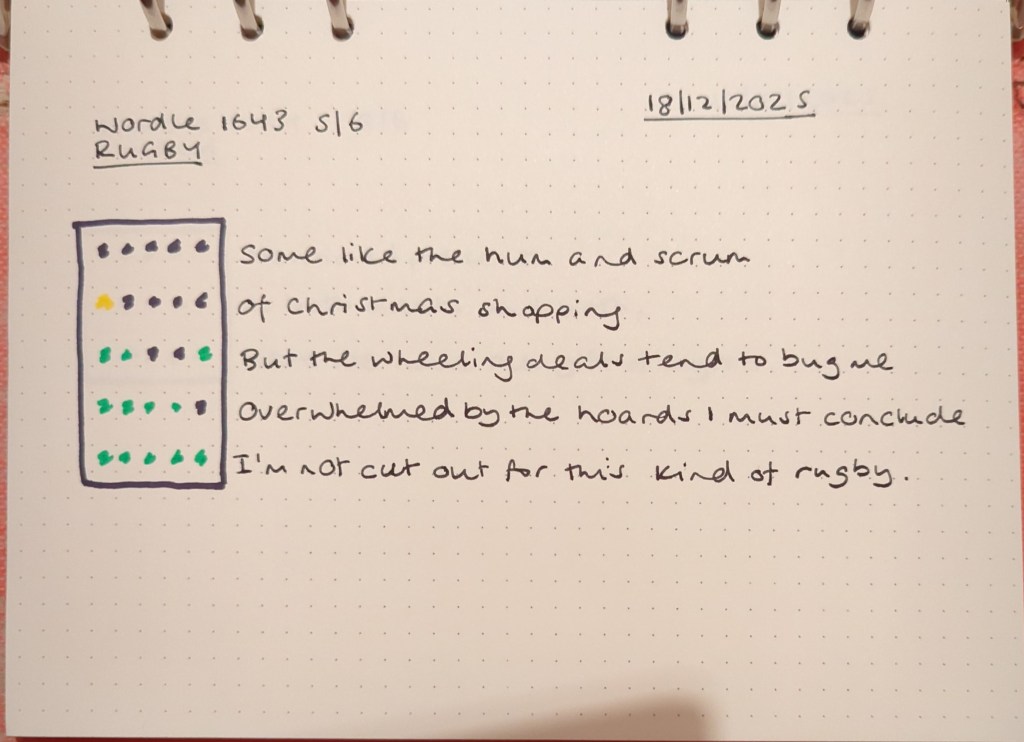 18/12/2025
Wordle 1643 5/6
RUGBY
Some like the hum and scrum
of Christmas shopping
But the wheeling deals tend to bug me
Overwhelmed by the hoards I must conclude
I'm not cut out for this kind of rugby.